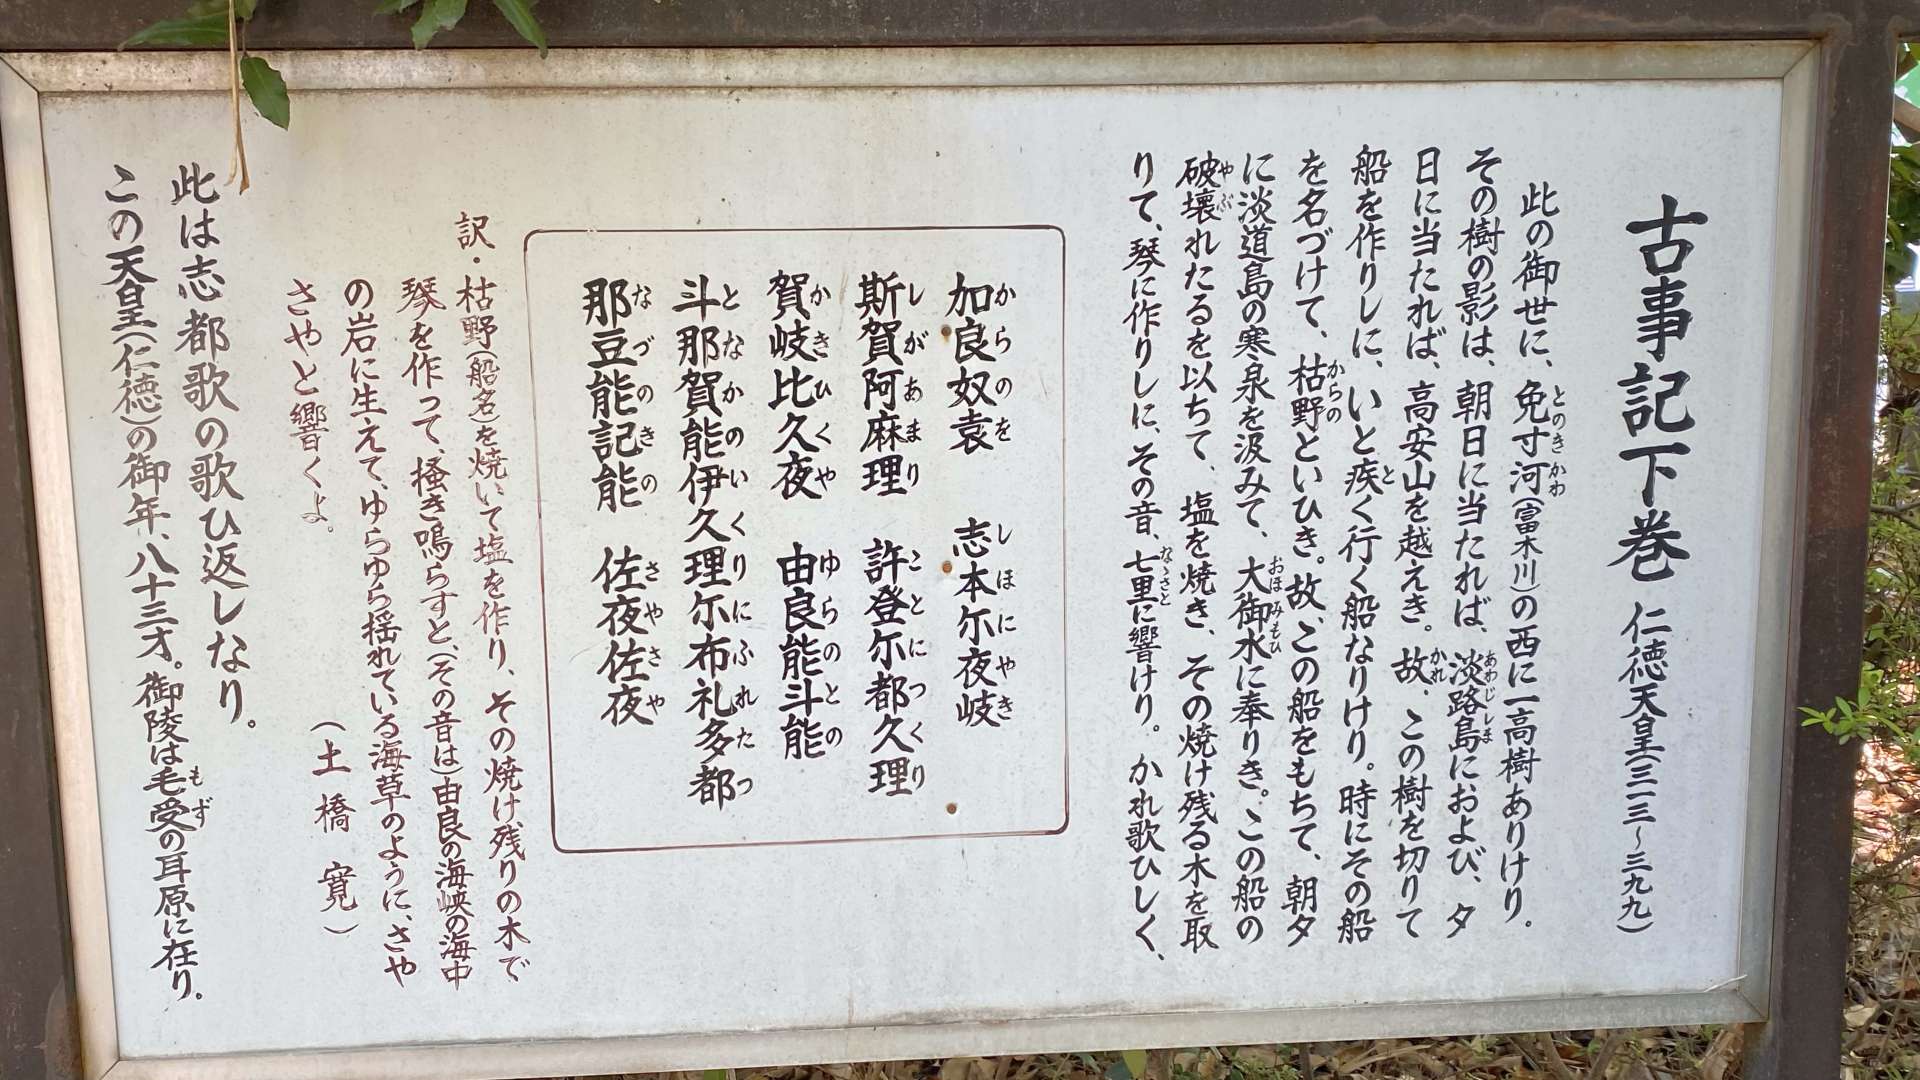 古事記下巻 仁徳天皇(三一三～三九九)
此の御世に、免寸河(富木川)の西に一高樹ありけり。
その樹の影は、朝日に当たれば、淡路島におよび、夕
日に当たれば、高安山を越えき。故、この樹を切りて
船を作りしに、いと疾く行く船なりけり。時にその船
を名づけて、枯野といひき。故、この船をもちて、朝夕
に淡道島の寒泉を汲みて、大御水に奉りき。この船の
破壊れたるを以ちて、塩を焼き、その焼け残る木を取
りて、琴に作りしに、その音、七里に響けり。かれ歌ひしく、
加良奴袁 志本尓夜岐
斯賀阿麻理 許登尓都久理
賀岐比久夜 由良能斗能
斗那賀能伊久理尓布礼多都
那豆能記能 佐夜佐夜
訳・枯野(船名)を焼いて塩を作り、その焼け残りの木で
琴を作って、掻き鳴らすと、(その音は)由良の海峡の海中
の岩に生えて、ゆらゆら揺れている海草のように、さや
さやと響くよ。
(土橋 寛)
此は志都歌の歌ひ返しなり。
この天皇(仁徳)の御年、八十三才。御陵は毛受の耳原に在り。